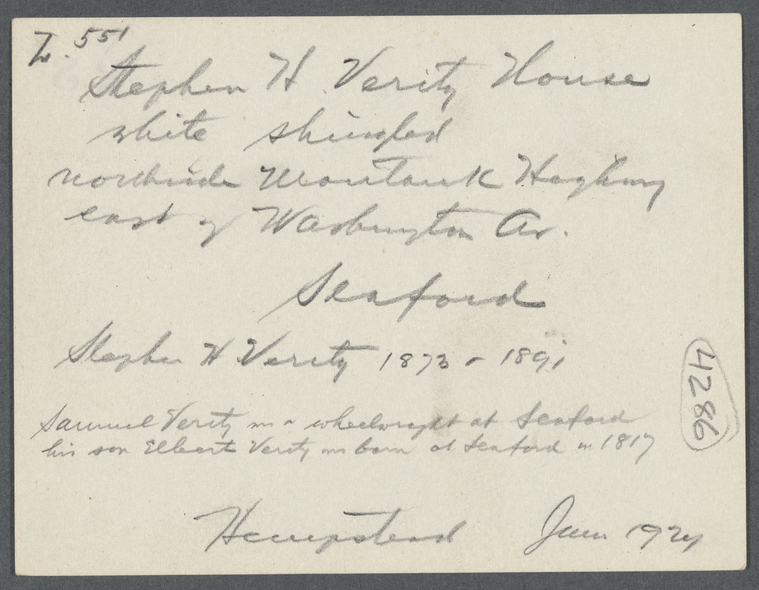 L. 551
Stephen H Verity House
white shingled
northside Montauk Highway
east of Washington Av.
Seaford
Stephen H Verity 1873 - 1891
Samuel Verity was a wheelwright at Seaford
his son Elbert Verity was born at Seaford in 1817
4286
Hempstead June 1924